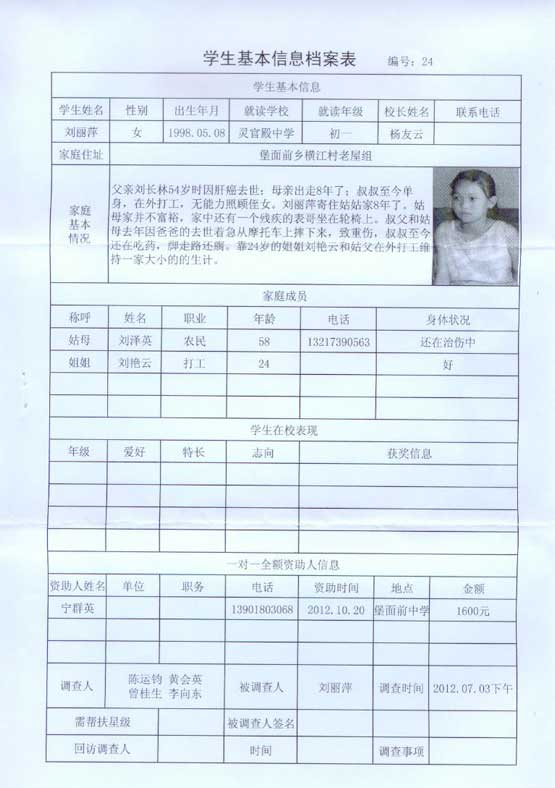 学生基本信息档案表 编号：24
学生基本信息
学生姓名 性别 出生年月 就读学校 就读年级 校长姓名 联系电话
刘丽萍 女 1998.05.08 灵官殿中学 初一 杨友云
家庭住址 堡面前乡横江村老屋组
家庭基本情况
父亲刘长林54岁时因肝癌去世；母亲出走8年了；叔叔至今单
身，在外打工，无能力照顾侄女。刘丽萍寄住姑姑家8年了。姑
母家并不富裕，家中还有一个残疾的表哥坐在轮椅上。叔父和姑
母去年因爸爸的去世着急从摩托车上摔下来，致重伤，叔叔至今
还在吃药，脚走路还瘸。靠24岁的姐姐刘艳云和姑父在外打工维
持一家大小的的生计。
家庭成员
称呼 姓名 职业 年龄 电话 身体状况
姑母 刘泽英 农民 58 13217390563 还在治伤中
姐姐 刘艳云 打工 24 好
学生在校表现
年级 爱好 特长 志向 获奖信息
一对一全额资助人信息
资助人姓名 单位 职务 电话 资助时间 地点 金额
宁群英 13901803068 2012.10.20 堡面前中学 1600元
调查人 陈运钧 黄会英 曾桂生 李向东 被调查人 刘丽萍 调查时间 2012.07.03下午
需帮扶星级 被调查人签名
回访调查人 时间 调查事项